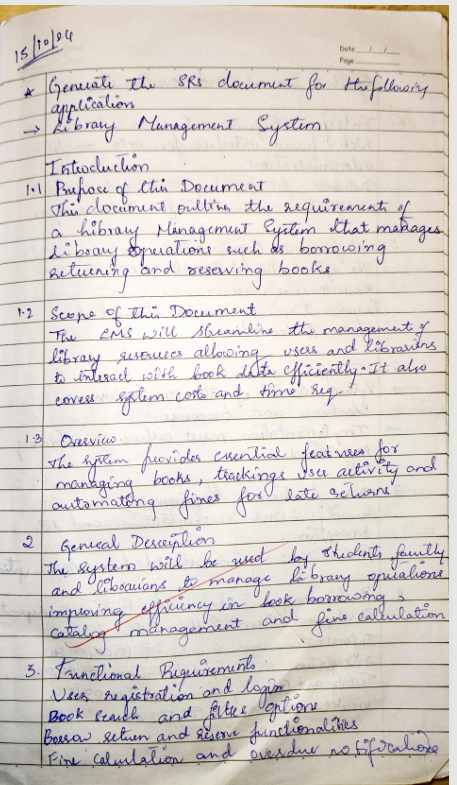 15/10/24
Date / /
Page
* Generate the SRS document for the following
application
→ Library Management System
Introduction
1.1 Purpose of this Document
This document outlin the requirements of
a Library Management System that manages
library operations such as borrowing
returning and reserving books
1.2 Scope of this Document
The LMS will streamline the management of
library resources allowing users and librarians
to interact with book data efficiently. It also
covers system costs and time req.
1.3 Overview
The system provides essential features for
managing books, trackings user activity and
automating fines for late returns
2 General Description
The system will be used by students faculty
and librarians to manage library operations
improving efficiency in book borrowing,
catalog management and fine calculation
3. Functional Requirements
User registration and login
Book search and filter options
Borrow return and reserve functionalities
Fine calculation and overdue notifications